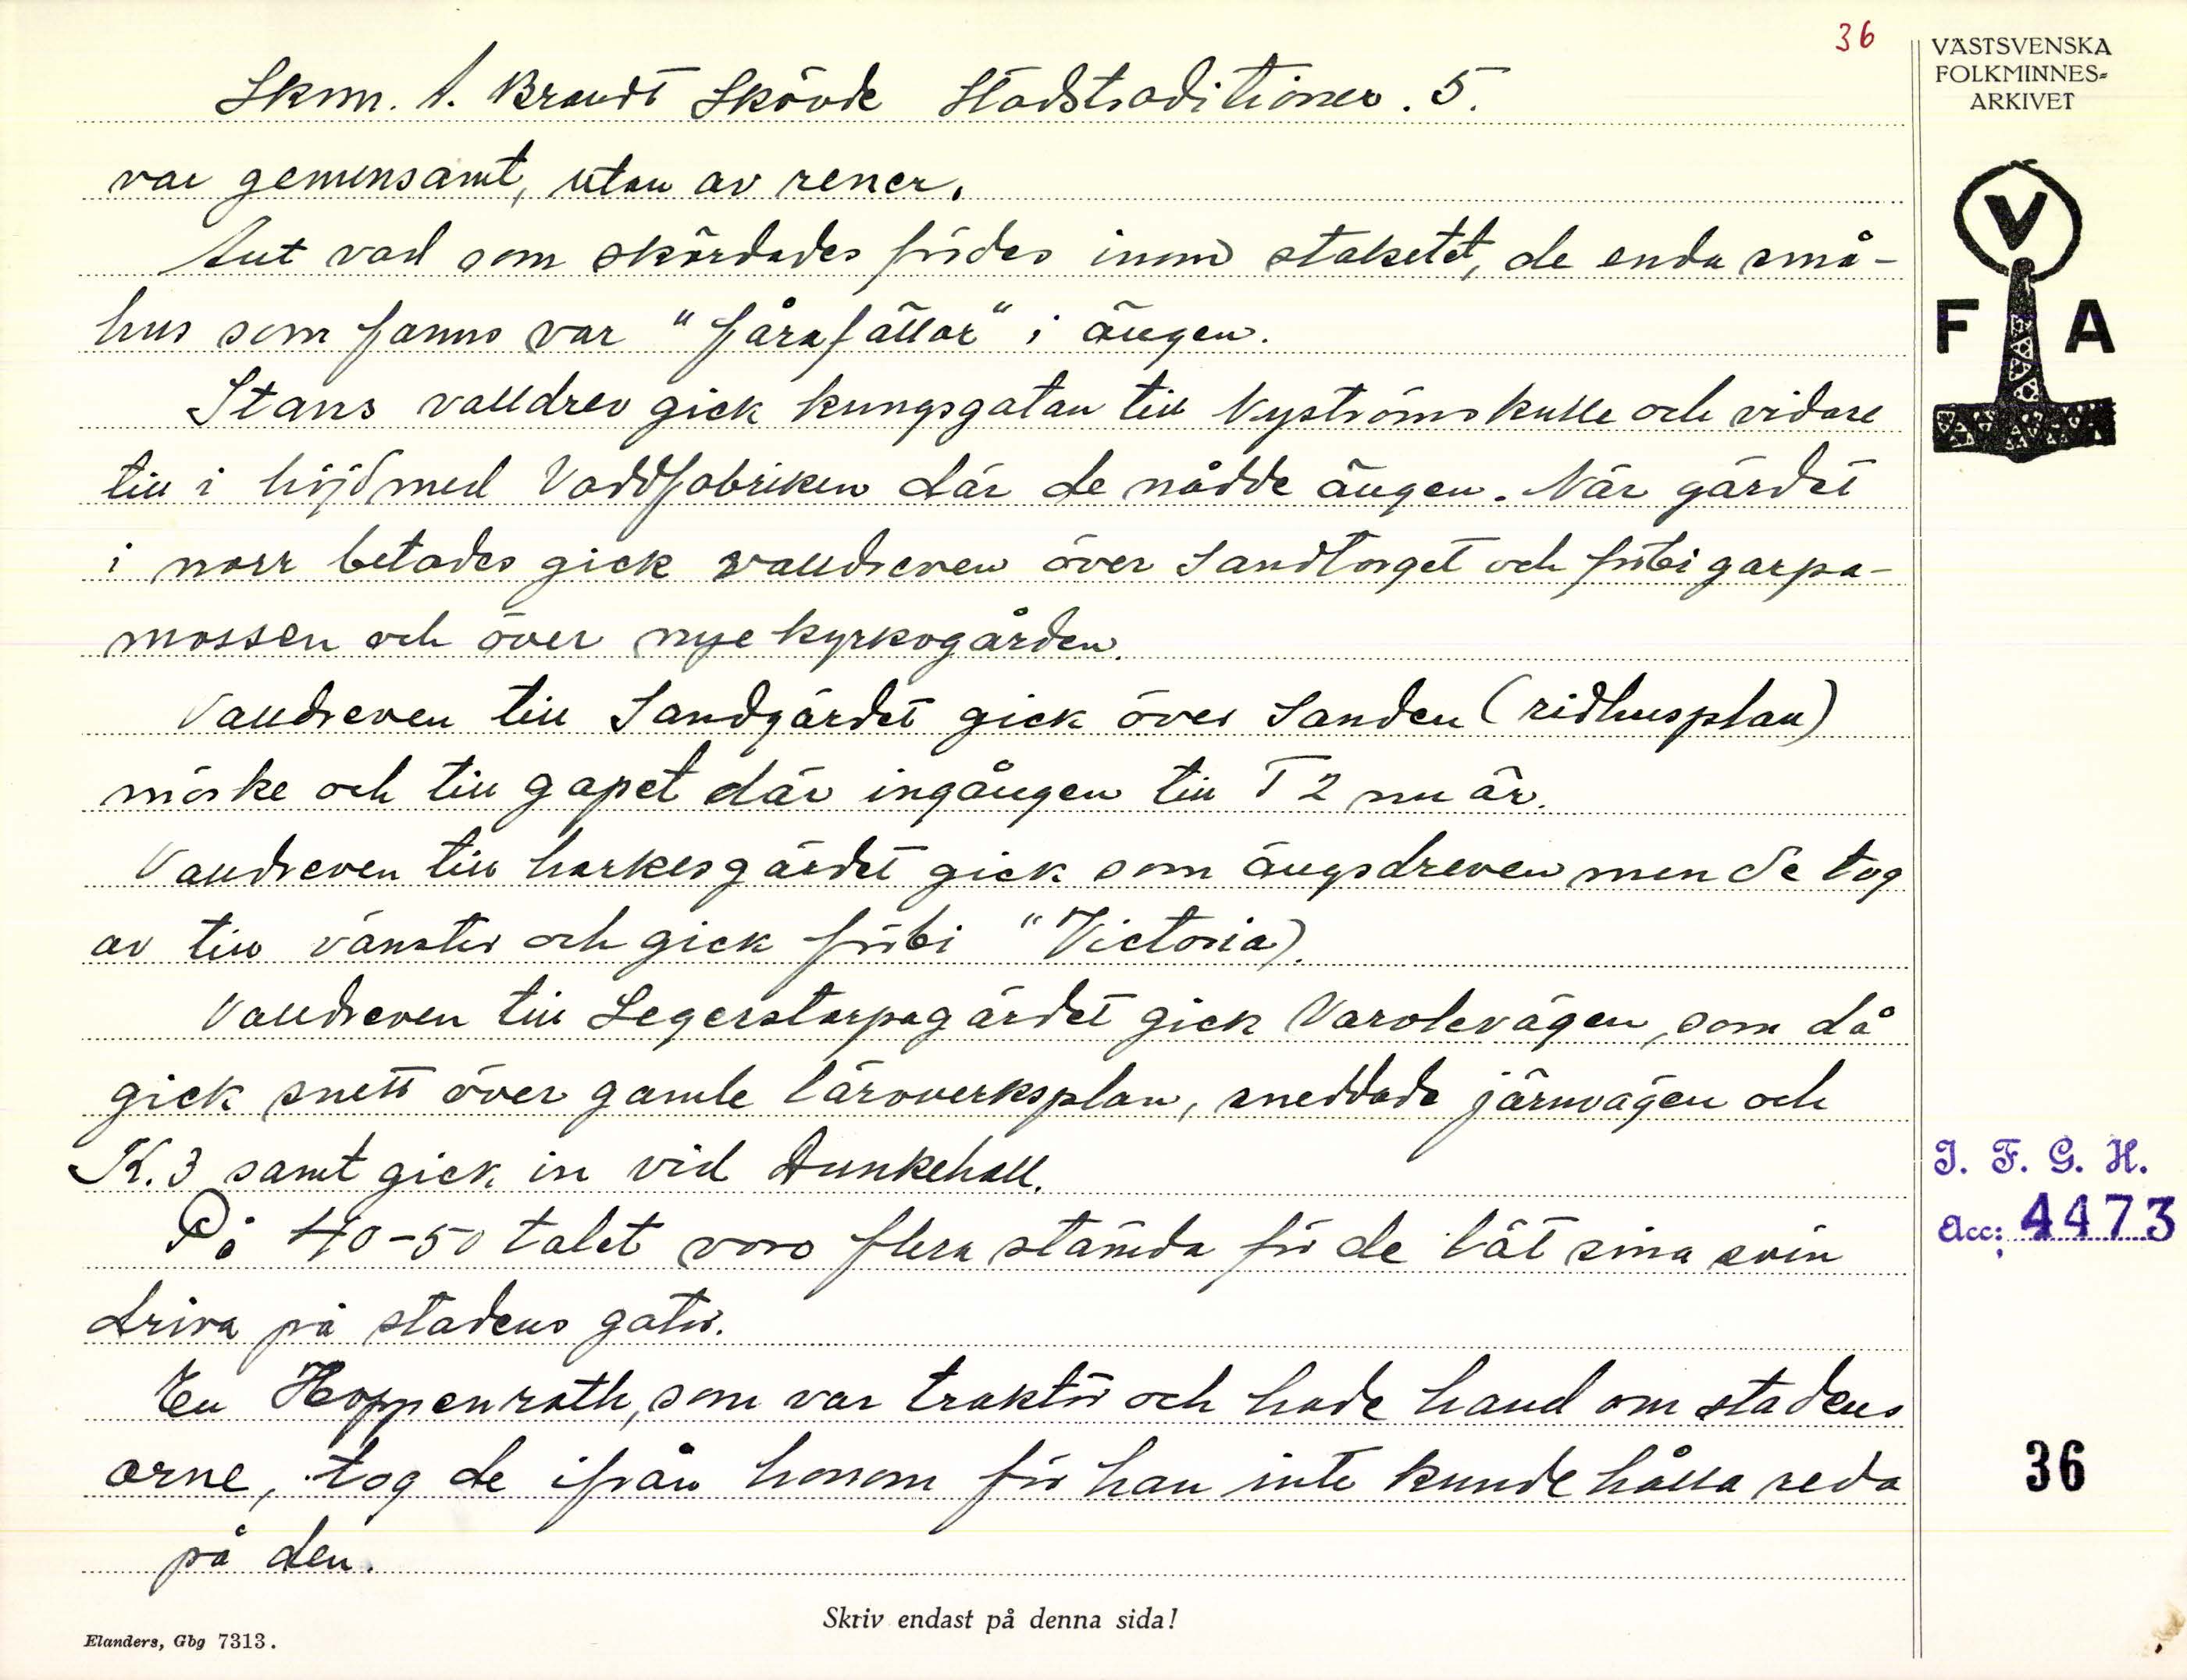 36
VÄSTSVENSKA
FOLKMINNES-
ARKIVET
V
F A
Skm. A. Brandt Skövde Stadstraditioner. 5.
var gemensamt, utan av rener.
Allt vad som skördades fördes inom staketet, de enda små-
hus som fanns var "fårafällor" i ängen.
Stans valldrev gick kungsgatan till Nyströms kulle och vidare
till i höjd med Vaddfabriken där de nådde ängen. När gärdet
i norr betades gick valldreven över Sandtorget och förbi garpa-
mossen och över nye kyrkogården.
Valldreven till Sandgärdet gick över Sanden (ridhusplan)
mörke och till gapet där ingången till T 2 nu är.
Valldreven till harkesgärdet gick som ängsdreven men de tog
av till vänster och gick förbi "Victoria).
Valldreven till Segerstorpagärdet gick Varolevägen, som då
gick snett över gamle läroverksplan, sneddade järnvägen och
K.3 samt gick in vid Dunkehall.
På 40-50 talet voro flera stämda för de lät sina svin
driva på stadens gator.
En Hoppenrath, som var traktör och hade hand om stadens
orne, tog de ifrån honom för han inte kunde hålla reda
på den.
I. F. G. H.
Acc: 4473
36
Skriv endast på denna sida!
Elanders, Gbg 7313.